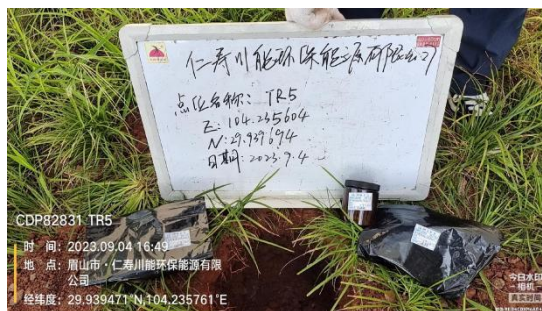 仁寿川能环保能源有限公司
点位名称: TR5
E: 104.235604
N: 29.939694
日期: 2023.9.4
CDP82831 TR5
时 间: 2023.09.04 16:49
地 点: 眉山市·仁寿川能环保能源有限
公司
经纬度: 29.939471°N,104.235761°E
今日水印
相机
真实时间